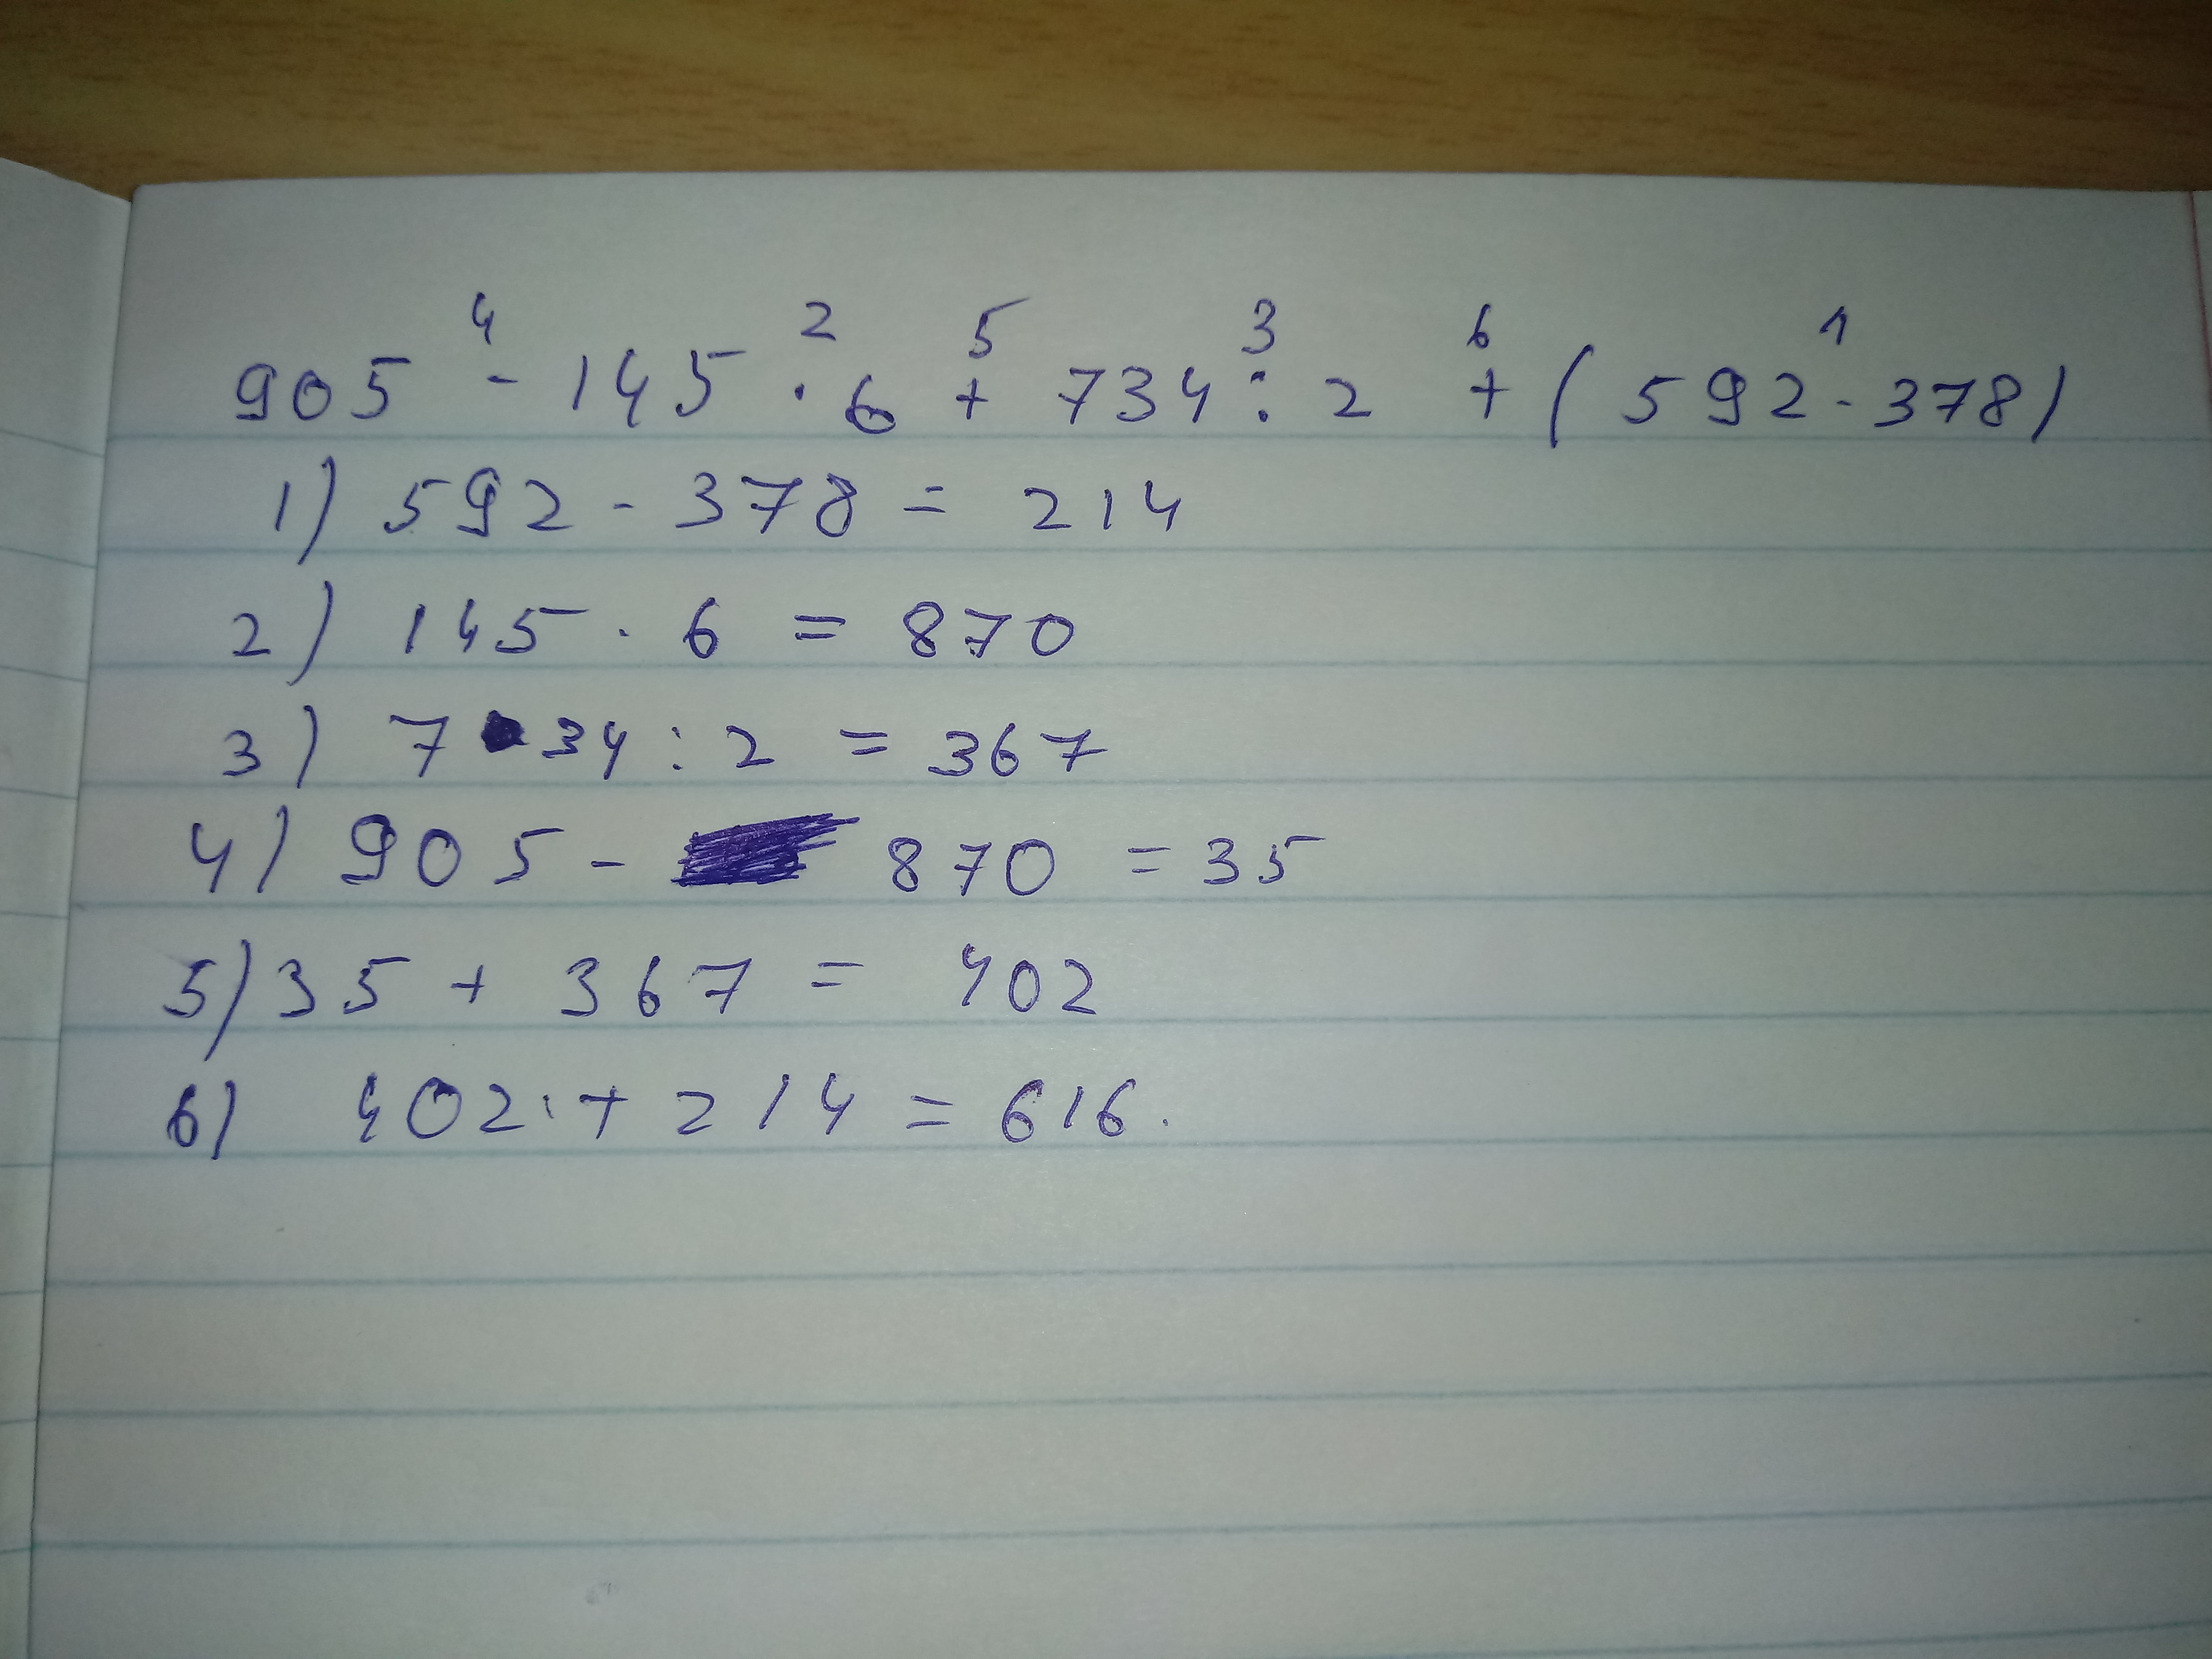 4 2 5 3 6 1
905 - 145 · 6 + 734 : 2 + ( 592 - 378 )
1) 592 - 378 = 214
2) 145 · 6 = 870
3) 7 34 : 2 = 367
4) 905 - 870 = 35
5) 35 + 367 = 402
6) 402 + 214 = 616.